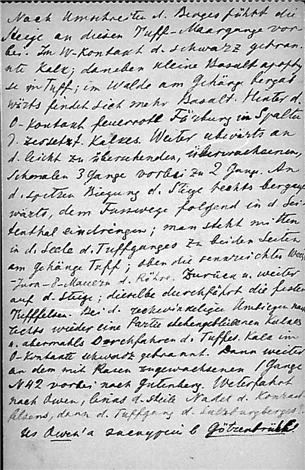 Nach Umschreiten d. Berges führt die
Steige an diesen Tuff-Maargange vor-
bei. Im W-Kontakt d. schwarz gebran-
nte Kalk; daneben kleine Basaltapophy-
se im Tuff; im Walde am Gehänge bergab-
wärts findet sich mehr Basalt. Hinter d.
O-Kontakt feuerrote Färbung in Spalten
d. zersetzt. Kalkes. Weiter abwärts an
d. leicht zu übersehenden, überwachsenen
schmalen 3 Gange vorbei zu 2 Gang. An
d. spitzen Biegung d. Steige rechts bergauf-
wärts, dem Fusswege folgend in d. Sei-
tenthal eindringen; man steht mitten
in d. Seele d. Tuffganges zu beiden Seiten
am Gehänge Tuff; oben die senkrechte Weiss-
Jura-δ-Mauern d. Röhre. Zurück u. weiter
auf d. Steige; dieselbe durchfährt die festen
Tuffelsen. Bei d. rechtwinkeligen Umbiegung nach
rechts wieder eine Partie stehengebliebenen Kalkes
u. abermals Durchfahren d. Tuffes. Kalk im
O-Kontakte schwarz gebrannt. Dann weiter
an dem mit Rasen zugewachsenen 1 Gange
N 42 vorbei nach Gutenberg. Weiterfahrt
nach Owen, links d. steile Nadel d. Konrad-
felsens, dann d. Tuffgang d. Sulzburgberges.
Из Owen'а экскурсия в Götzenbrühl